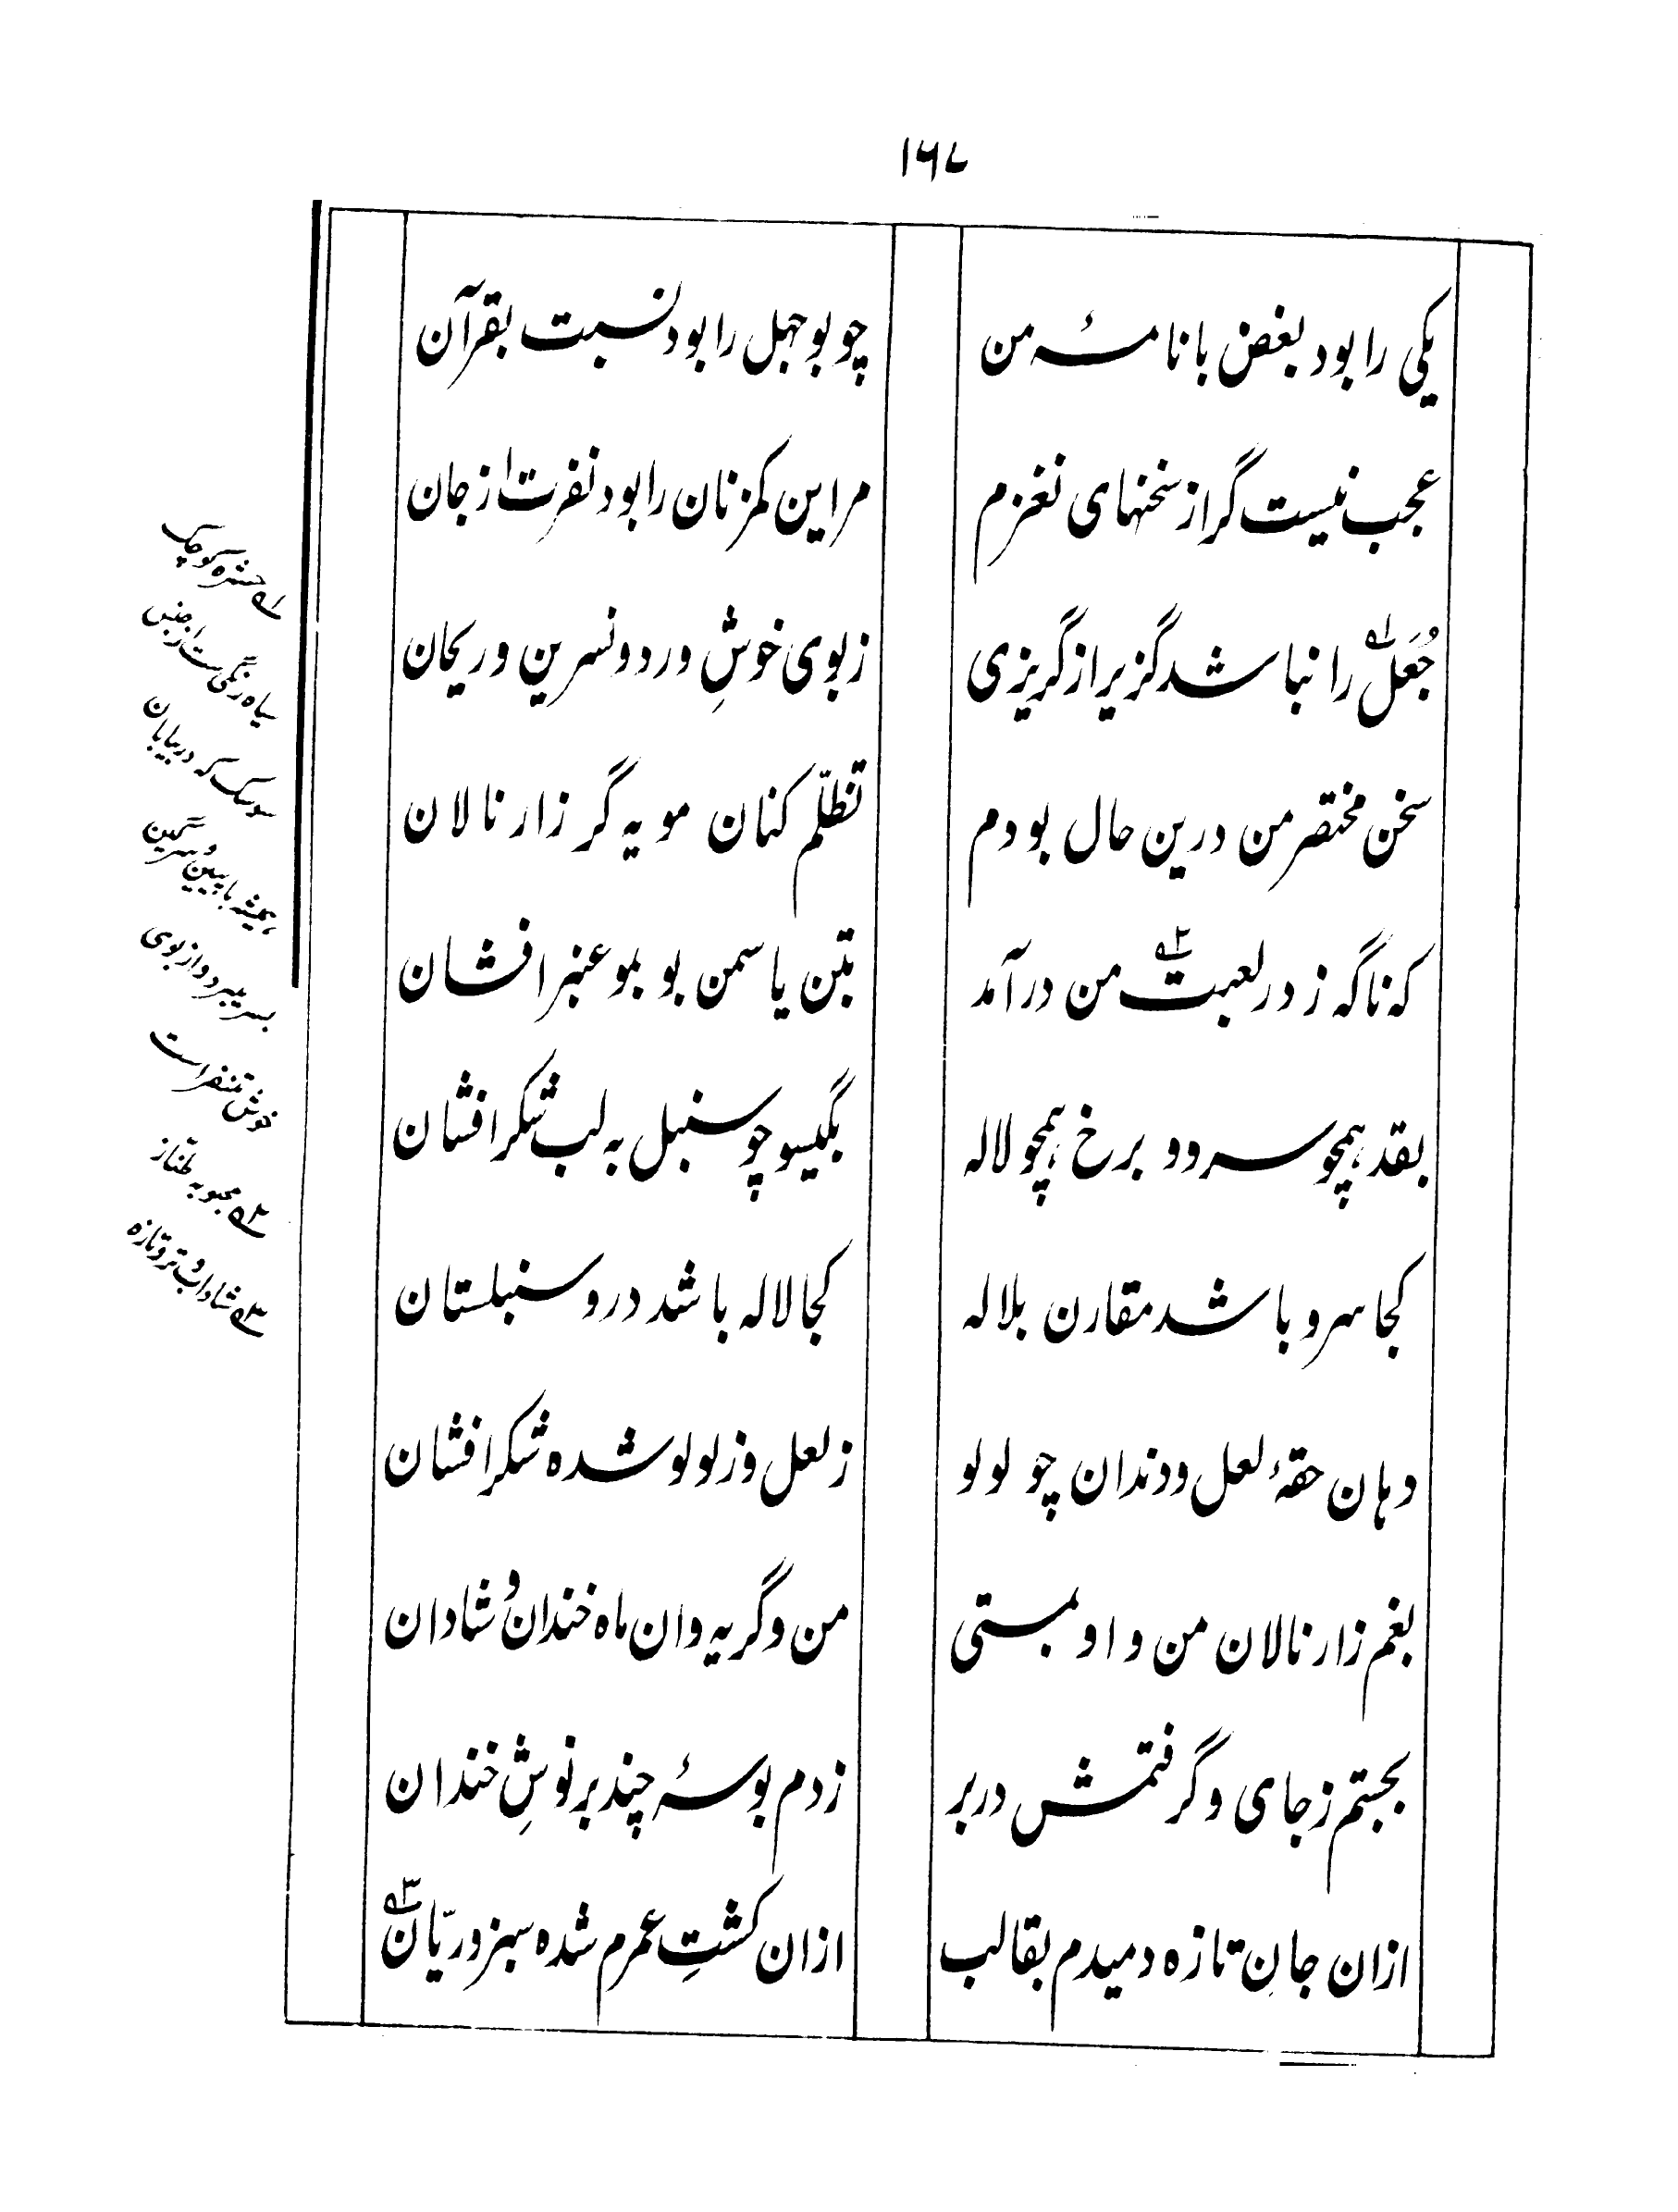 ۱۶۷
یکی را بود بغض با نامۀ من
چو بوجهل را بود نسبت بقرآن
عجب نیست گر از سخنهای نغزم
مر این کمزنان را بود نفرت از جان
جُعَل را نباشد گزیر از گریزی
ز بوی خوشِ ورد و نسرین و ریحان
سخن مختصر من درین حال بودم
تظلّم کنان مویه گر زار نالان
که ناگه ز در لعبت من درآمد
بتن یاسمن بو بمو عنبر افشان
بقد همچو سرو و برخ همچو لاله
بگیسو چو سنبل به لب شکر افشان
کجا سرو باشد مقارن بلاله
کجا لاله باشد درو سنبلستان
دهان حقۀ لعل و دندان چو لولو
ز لعل و ز لولو شده شکر افشان
بغم زار نالان من و او بمستی
من و گریه وان ماه خندان و شادان
بجستم ز جای و گرفتمش در بر
زدم بوسۀ چند بر نوشِ خندان
ازان جانِ تازه دمیدم بقالب
ازان کشتِ عمرم شده سبز و ریّان
۱ حشره کوچک
سیاه رنگی ست از جنس
سوسک که در بیابان
همیشه با پهین و سرگین
بسر میبرد و از بوی
خوش متنفر است
۲ محبوبه طناز
۳ شاداب و تر و تازه